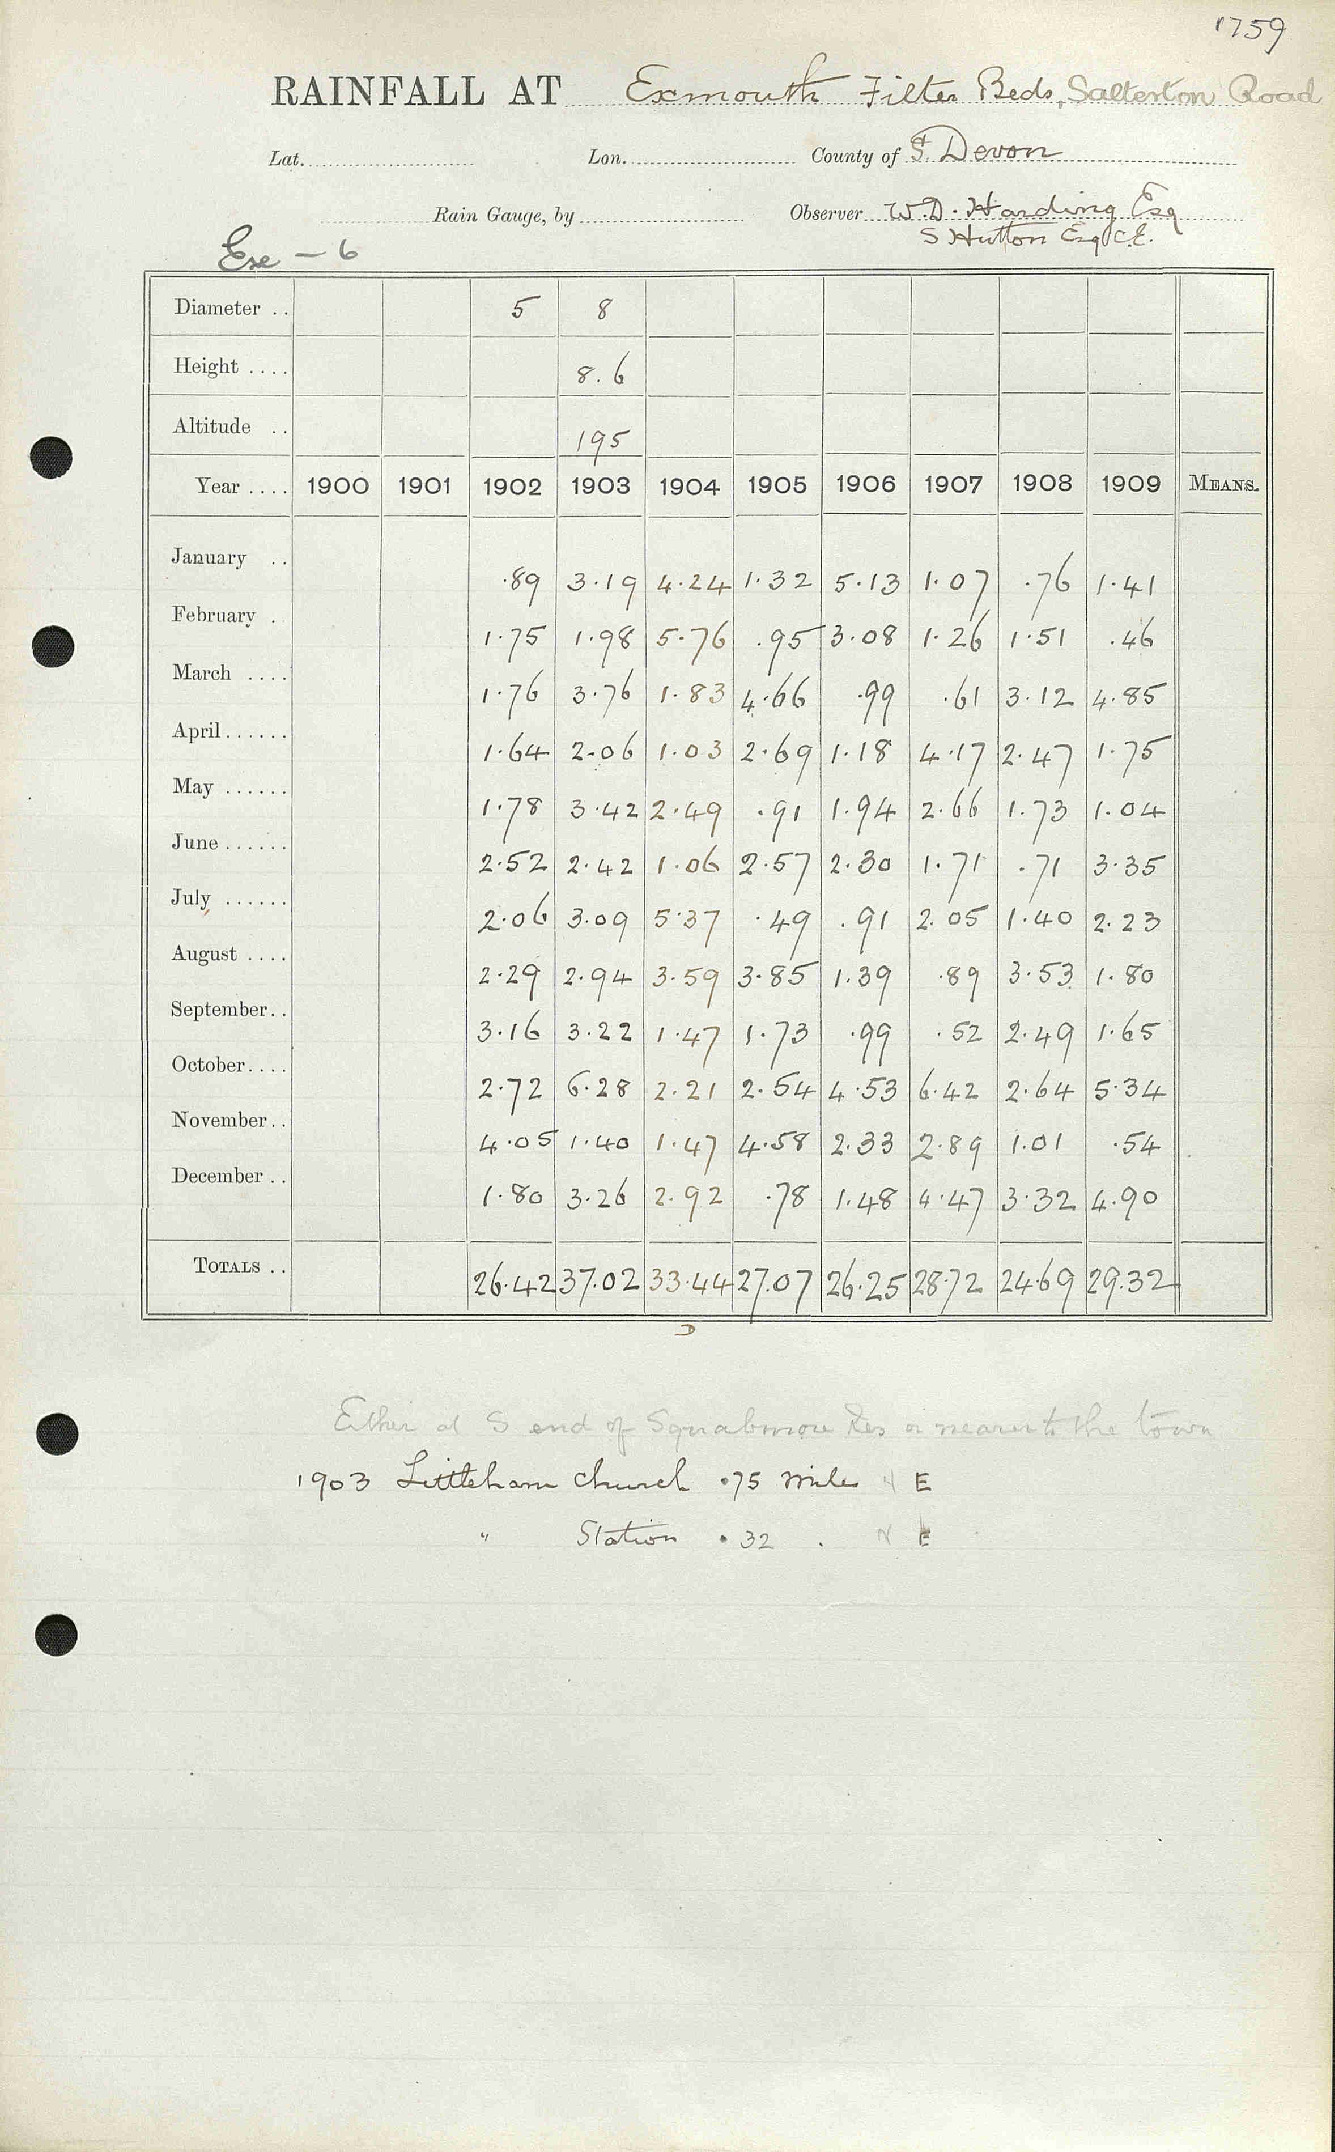 1759
RAINFALL AT Exmouth Filter Beds, Salterton Road
Lat. Lon. County of S. Devon
Rain Gauge, by Observer W.D. Harding Esq
S Hutton Esq C.E.
Exe - 6
Diameter .. 5 8
Height .... 8.6
Altitude .. 195
Year .... 1900 1901 1902 1903 1904 1905 1906 1907 1908 1909 MEANS.
January .. .89 3.19 4.24 1.32 5.13 1.07 .76 1.41
February . 1.75 1.98 5.76 .95 3.08 1.26 1.51 .46
March .... 1.76 3.76 1.83 4.66 .99 .61 3.12 4.85
April...... 1.64 2.06 1.03 2.69 1.18 4.17 2.47 1.75
May ...... 1.78 3.42 2.49 .91 1.94 2.66 1.73 1.04
June...... 2.52 2.42 1.06 2.57 2.30 1.71 .71 3.35
July ...... 2.06 3.09 5.37 .49 .91 2.05 1.40 2.23
August .... 2.29 2.94 3.59 3.85 1.39 .89 3.53 1.80
September.. 3.16 3.22 1.47 1.73 .99 .52 2.49 1.65
October.... 2.72 6.28 2.21 2.54 4.53 6.42 2.64 5.34
November.. 4.05 1.40 1.47 4.58 2.33 2.89 1.01 .54
December .. 1.80 3.26 2.92 .78 1.48 4.47 3.32 4.90
TOTALS .. 26.42 37.02 33.44 27.07 26.25 28.72 24.69 29.32
D
Either at S end of Squabmore Res or nearer to the town
1903 Littleham Church .75 mile E
" Station .32 . N E